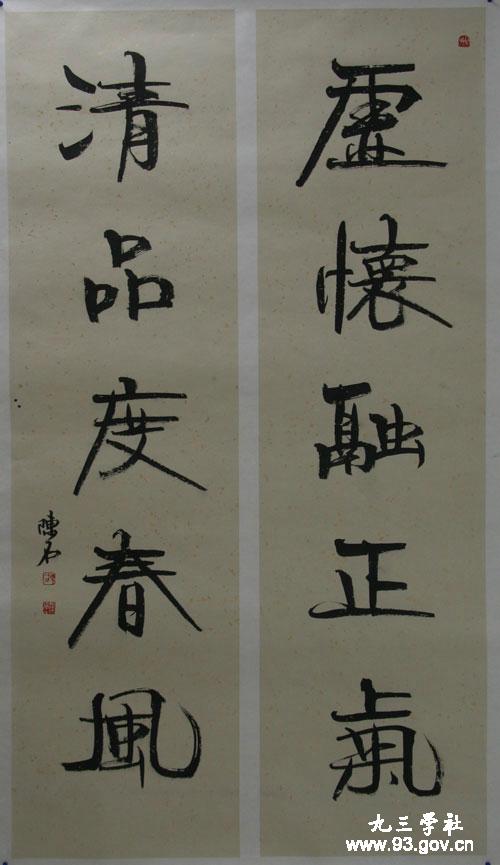 虛懷融正氣
清品度春風
陳石
九三学社
www.93.gov.cn